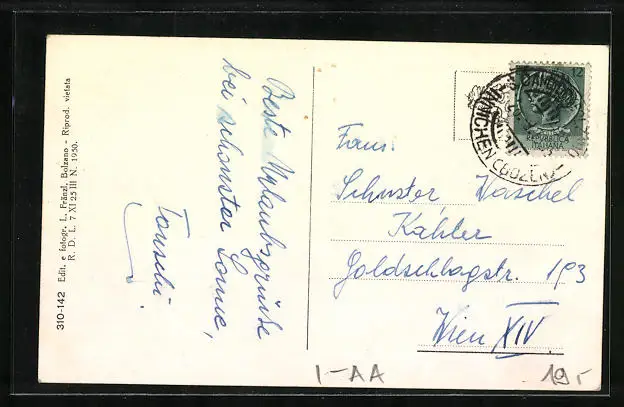 310-142 Edit. e fotogr. L. Fränzl, Bolzano - Riprod. vietata
R. D. L. 7 XI 25 III N. 1950.
Beste Urlaubsgrüße
bei schönster Sonne,
12
REPUBBLICA
ITALIANA
INNICHEN (BOZEN)
Fam.
Schuster
Kahler
Goldschlagstr. 193
Wien XIV.
I-AA
19,-